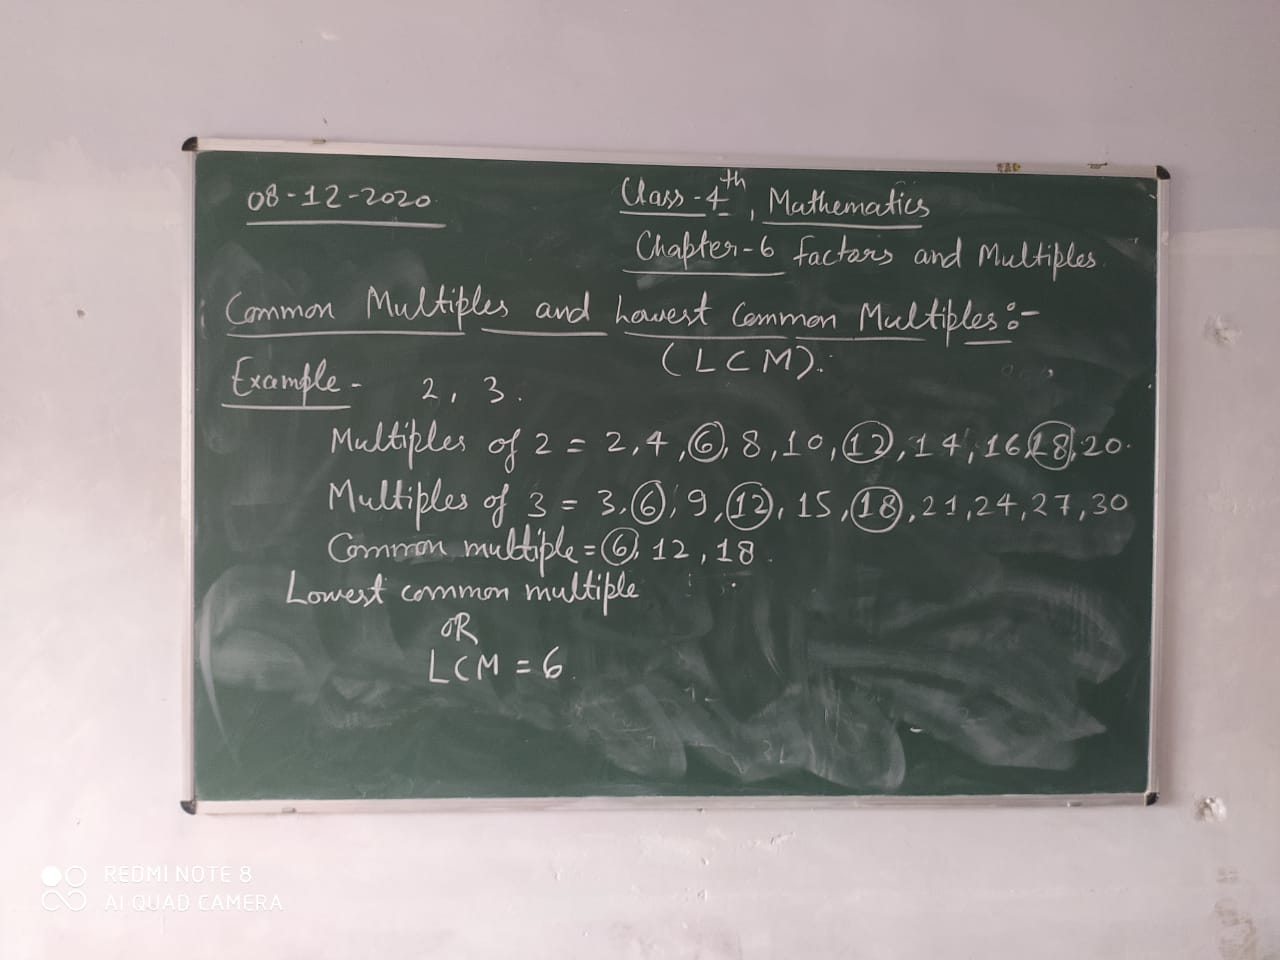 08-12-2020
Class-4th, Mathematics
Chapter-6 Factors and Multiples.
Common Multiples and Lowest Common Multiples:-
(LCM).
Example- 2, 3.
Multiples of 2 = 2,4,6,8,10,12,14,16,18,20.
Multiples of 3 = 3,6,9,12,15,18,21,24,27,30
Common multiple=6,12,18.
Lowest common multiple
OR
LCM = 6.
REDMI NOTE 8
AI QUAD CAMERA